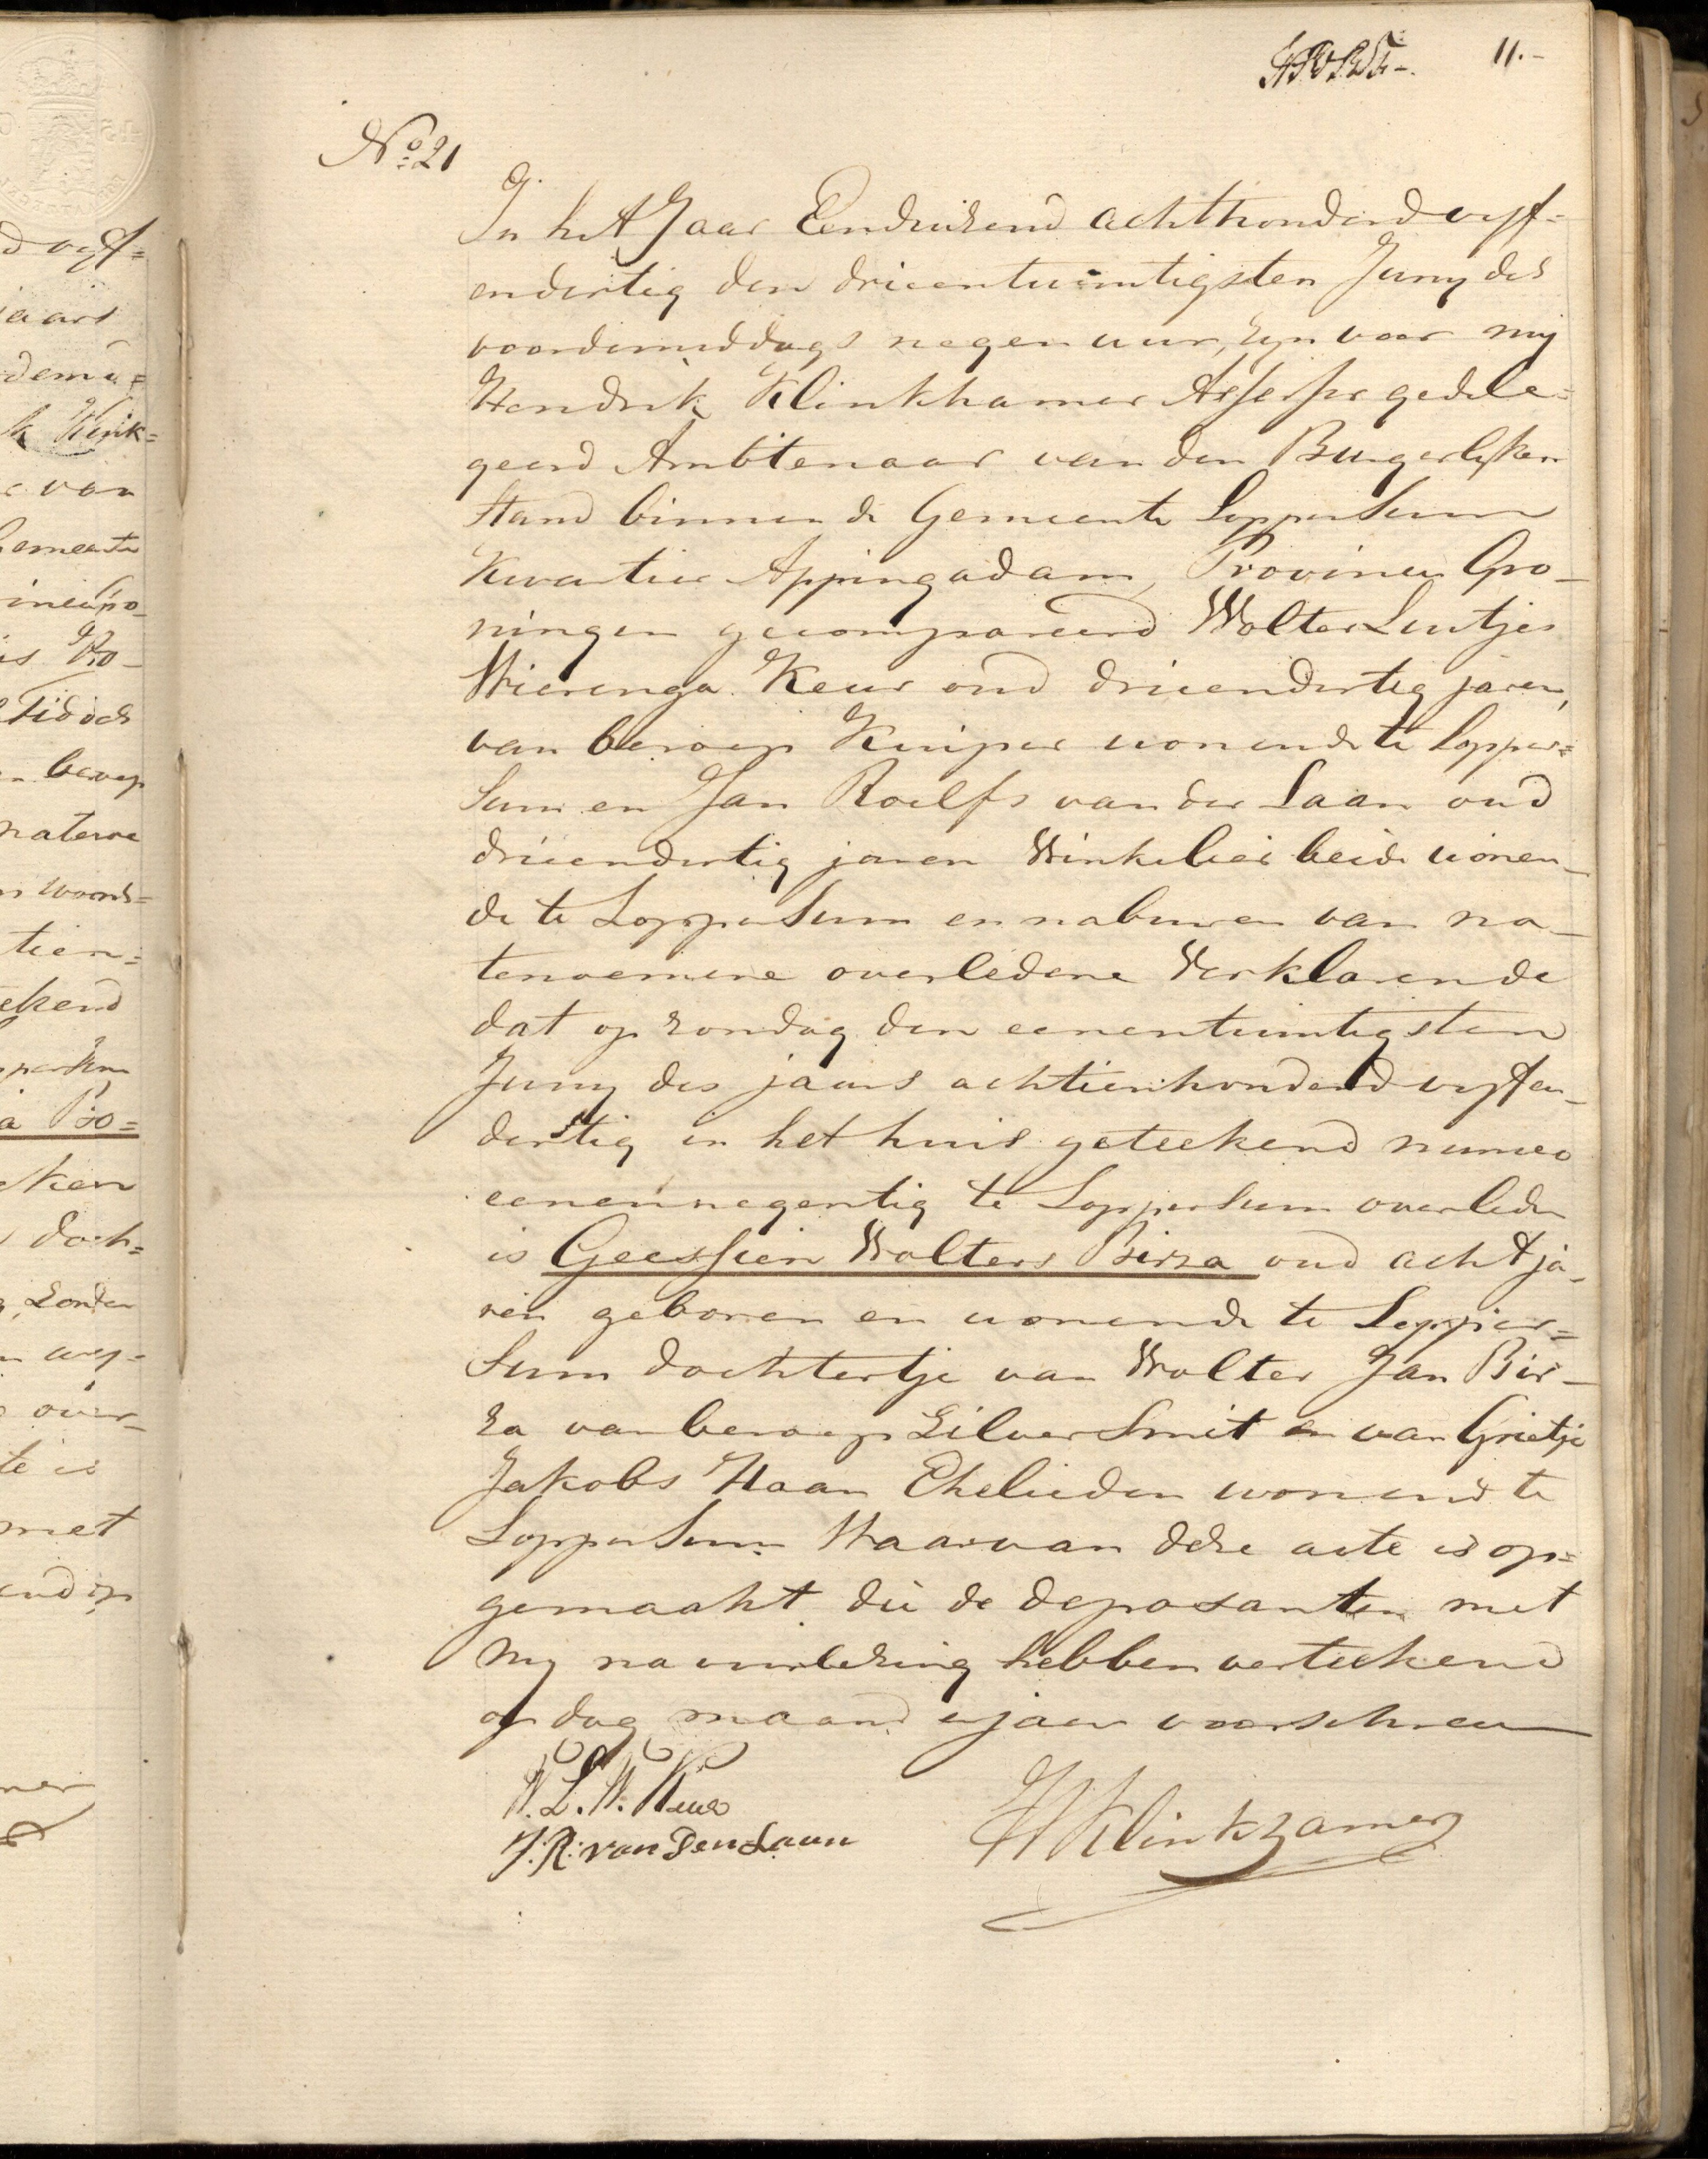 11.-
No. 21
In het Jaar Eenduizend achthonderd vyf=
endertig den drieentwintigsten Juny des
voordemiddags negen uur, zyn voor mij
Hendrik Klinkhamer Assessor gedele=
geerd Ambtenaar van den Burgerlyken
Stand binnen de Gemeente Loppersum
Kwartier Appingadam, Provincie Gro-
ningen gecompareerd Wolter Luitjes
Wierenga Keur oud drieendertig jaren,
van beroep Kuiper wonende te Lopper=
sum en Jan Roelfs van der Laan oud
drieendertig jaren Winkelier beide wonen-
de te Loppersum en naburen van na-
tenoemene overledene Verklarende
dat op zondag den eenentwintigsten
Juny des jaars achttienhonderd vyfen-
dertig in het huis geteekend numero
eenennegentig te Loppersum overleden
is Geessien Wolters Birza oud acht ja-
ren geboren en wonende te Lopper=
sum dochtertje van Wolter Jan Bir-
za van beroep Zilversmit en van Grietje
Jakobs Haan Ehelieden wonend te
Loppersum Waarvan deze acte is op=
gemaakt die de deposanten met
my na voorlezing hebben verteekend
op dag maand en jaar voorschreven
W. L. W. Keur
J. R. van Der Laan
H Klinkhamer